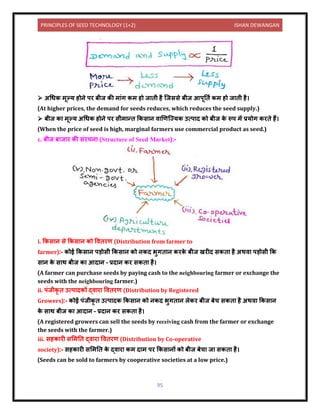 PRINCIPLES OF SEED TECHNOLOGY (1+2) ISHAN DEWANGAN
Demand and Supply ∝ 1/Price
More Price → Less demand → Less Supply
➢ अधिक मूल्य होने पर बीज की मांग कम हो जाती है जिससे बीज आपूर्ति कम हो जाती है।
(At higher prices, the demand for seeds reduces, which reduces the seed supply.)
➢ बीज का मूल्य अधिक होने से सीमान्त किसान वाणिज्यिक उत्पाद को बीज के रुप में प्रयोग करते हैं।
(When the price of seed is high, marginal farmers use commercial product as seed.)
c. बीज बाजार की संरचना (Structure of Seed Market):-
(i) Farmer
(v) Non-Govt. or Semi-Govt. agencies
(ii) Registered Grower
Farmer
(iv) Agriculture departments
(iii) Co-operative Societies
i. किसान से किसान को वितरण (Distribution from farmer to
farmer):- कोई किसान पड़ोसी किसान को नकद भुगतान करके बीज खरीद सकता है अथवा पड़ोसी कि
सान के साथ बीज का आदान - प्रदान कर सकता है।
(A farmer can purchase seeds by paying cash to the neighbouring farmer or exchange the
seeds with the neighbouring farmer.)
ii. पंजीकृत उत्पादकों द्वारा वितरण (Distribution by Registered
Growers):- कोई पंजीकृत उत्पादक किसान को नकद भुगतान लेकर बीज बेच सकता है अथवा किसान
के साथ बीज का आदान - प्रदान कर सकता है।
(A registered growers can sell the seeds by receiving cash from the farmer or exchange
the seeds with the farmer.)
iii. सहकारी समिति द्वारा वितरण (Distribution by Co-operative
society):- सहकारी समिति के द्वारा कम दाम पर किसानों को बीज बेचा जा सकता है।
(Seeds can be sold to farmers by cooperative societies at a low price.)
95